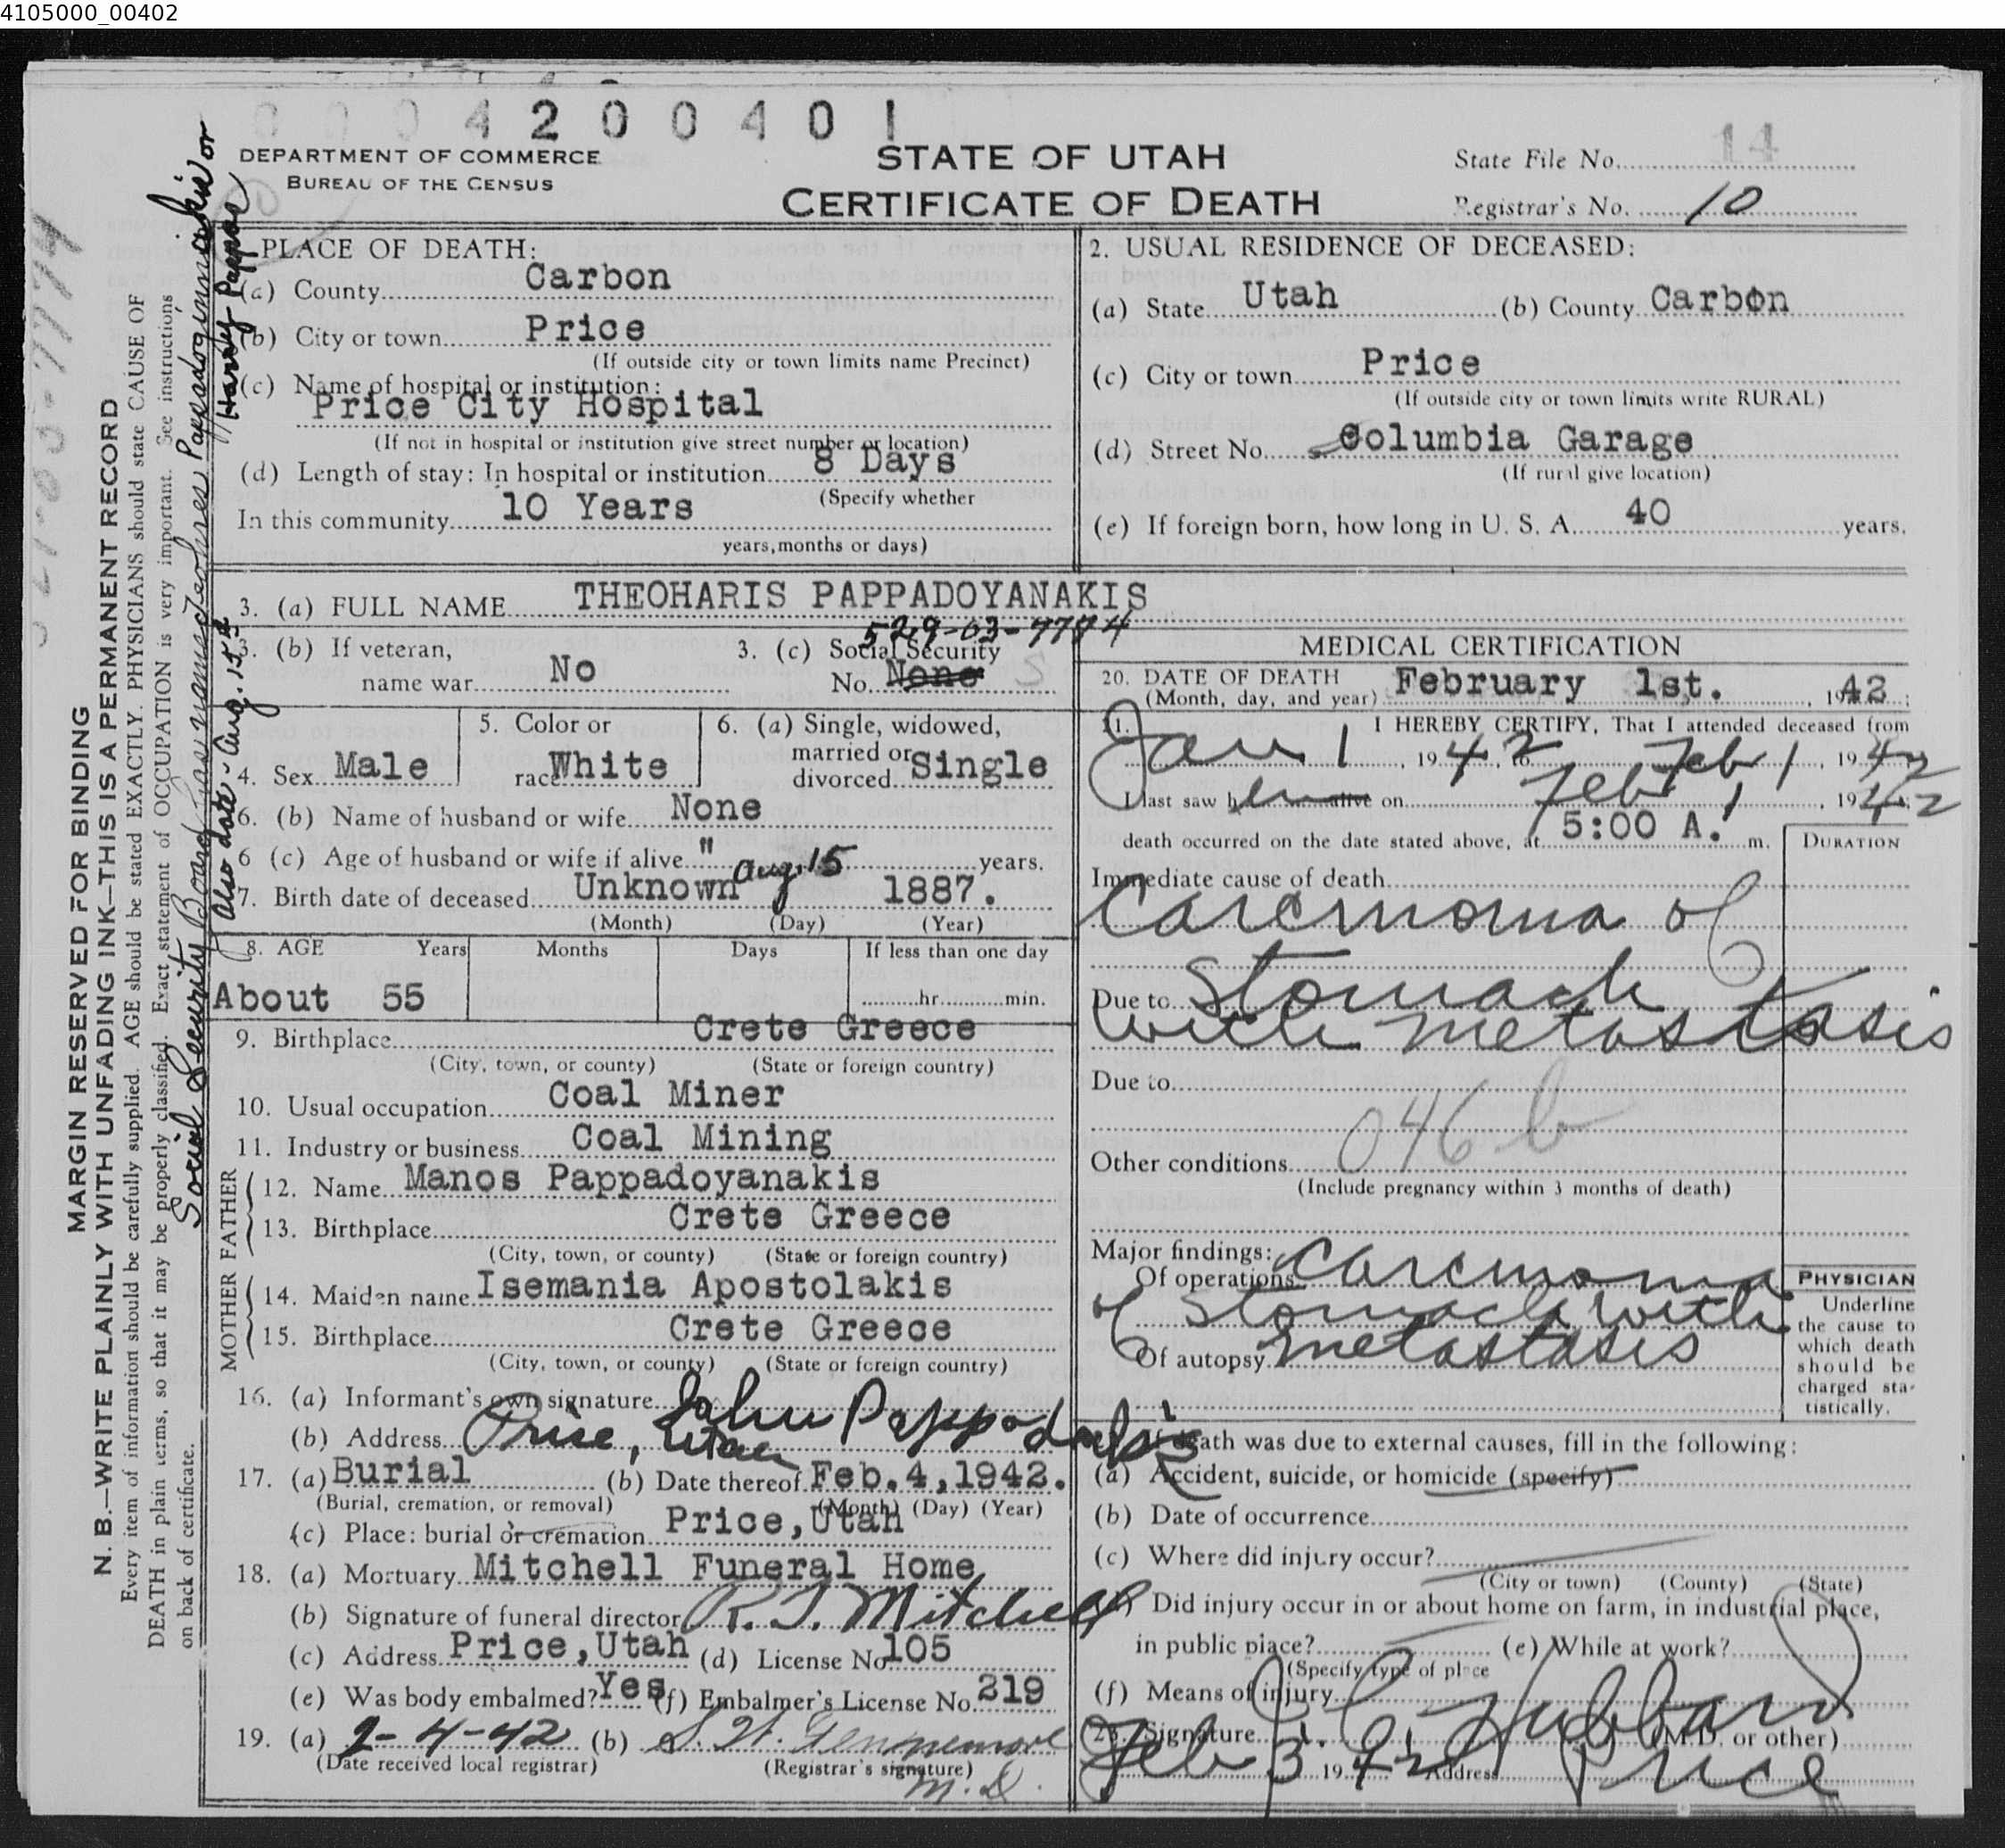 4105000_00402
0004200401
14
DEPARTMENT OF COMMERCE
BUREAU OF THE CENSUS
STATE OF UTAH
CERTIFICATE OF DEATH
State File No.
Registrar's No. 10
MARGIN RESERVED FOR BINDING
N. B.—WRITE PLAINLY WITH UNFADING INK—THIS IS A PERMANENT RECORD
Every item of information should be carefully supplied. AGE should be stated EXACTLY. PHYSICIANS should state CAUSE OF
DEATH in plain terms, so that it may be properly classified. Exact statement of OCCUPATION is very important. See instructions
on back of certificate.
Social Security Board has name
or
Harry Pappas
Also date - Aug. 15th
PLACE OF DEATH:
(a) County Carbon
(b) City or town Price
(If outside city or town limits name Precinct)
(c) Name of hospital or institution:
Price City Hospital
(If not in hospital or institution give street number or location)
(d) Length of stay: In hospital or institution 8 Days
(Specify whether
In this community 10 Years
years, months or days)
2. USUAL RESIDENCE OF DECEASED:
(a) State Utah (b) County Carbon
(c) City or town Price
(If outside city or town limits write RURAL)
(d) Street No. Columbia Garage
(If rural give location)
(e) If foreign born, how long in U. S. A. 40 years.
3. (a) FULL NAME THEOHARIS PAPPADOYANAKIS
529-03-7774
3. (b) If veteran, name war No
3. (c) Social Security No. None
4. Sex Male
5. Color or race White
6. (a) Single, widowed, married or divorced Single
6. (b) Name of husband or wife None
6 (c) Age of husband or wife if alive " years.
7. Birth date of deceased Unknown Aug. 15 1887.
(Month) (Day) (Year)
8. AGE Years Months Days If less than one day
About 55 hr. min.
9. Birthplace Crete Greece
(City, town, or county) (State or foreign country)
10. Usual occupation Coal Miner
11. Industry or business Coal Mining
FATHER
12. Name Manos Pappadoyanakis
13. Birthplace Crete Greece
(City, town, or county) (State or foreign country)
MOTHER
14. Maiden name Isemania Apostolakis
15. Birthplace Crete Greece
(City, town, or county) (State or foreign country)
16. (a) Informant's own signature John
(b) Address Price, Utah
17. (a) Burial (b) Date thereof Feb. 4, 1942.
(Burial, cremation, or removal) (Month) (Day) (Year)
(c) Place: burial or cremation Price, Utah
18. (a) Mortuary Mitchell Funeral Home
(b) Signature of funeral director R. J. Mitchell
(c) Address Price, Utah (d) License No. 105
(e) Was body embalmed? Yes (f) Embalmer's License No. 219
19. (a) 2-4-42 (b)
(Date received local registrar) (Registrar's signature)
M.D.
MEDICAL CERTIFICATION
20. DATE OF DEATH
(Month, day, and year) February 1st. , 1942
21. I HEREBY CERTIFY, That I attended deceased from
Jan 1, 1942, to Feb 1, 1942
I last saw him alive on Feb 1, 1942
death occurred on the date stated above, at 5:00 A. m.
DURATION
Immediate cause of death
Carcinoma of
Due to Stomach
with metastasis
Due to
046 b
Other conditions
(Include pregnancy within 3 months of death)
Major findings:
Of operations Carcinoma
of Stomach with
Of autopsy metastasis
PHYSICIAN
Underline
the cause to
which death
should be
charged sta-
tistically.
If death was due to external causes, fill in the following:
(a) Accident, suicide, or homicide (specify)
(b) Date of occurrence
(c) Where did injury occur?
(City or town) (County) (State)
Did injury occur in or about home on farm, in industrial place,
in public place? (e) While at work?
(Specify type of place
(f) Means of injury
23. Signature Hubbard (M.D. or other)
Feb 3 1942 Address Price